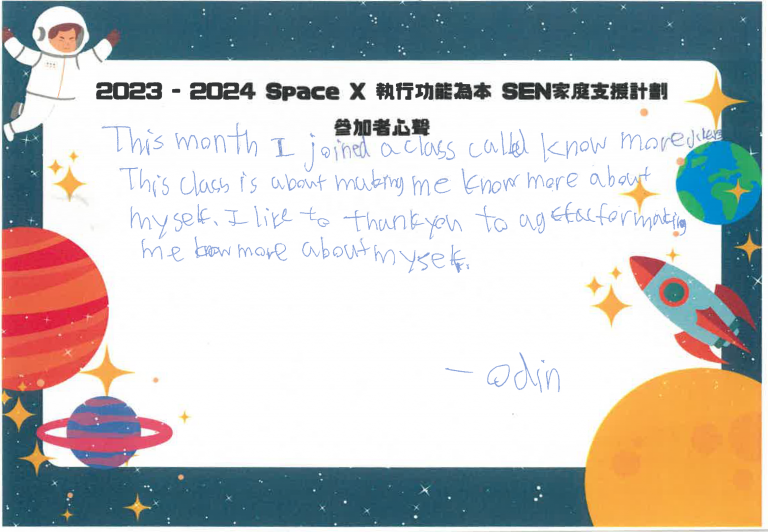 2023 - 2024 Space X 執行功能為本 SEN家庭支援計劃
參加者心聲
This month I joined a class called know more
This class is about making me know more about
myself. I like to thank you to for making
me know more about myself.
— odin